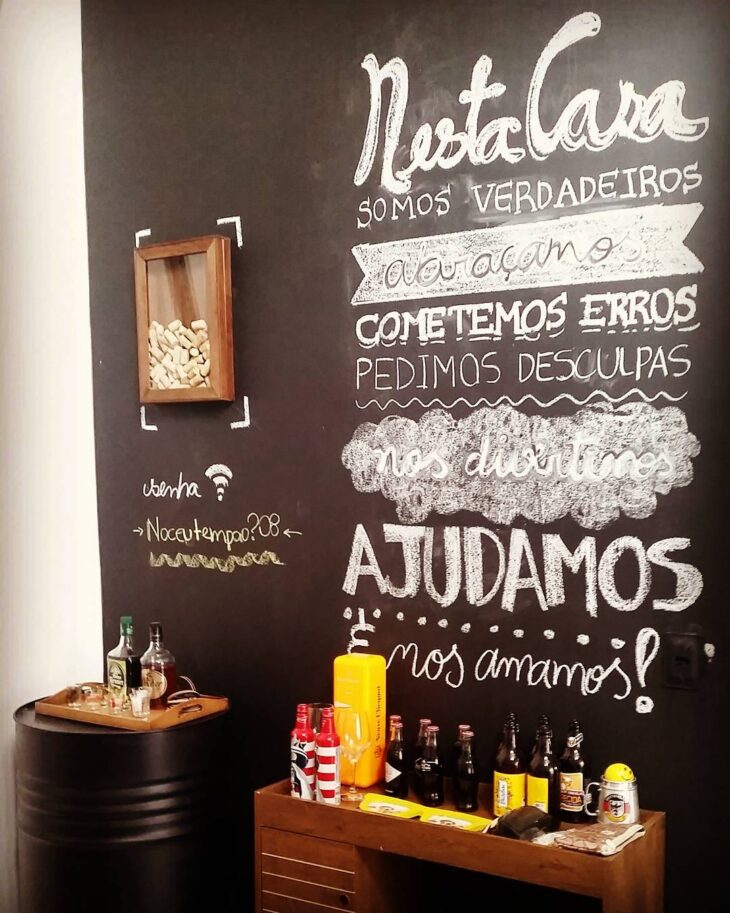 Nesta Casa
SOMOS VERDADEIROS
abraçamos
COMETEMOS ERROS
PEDIMOS DESCULPAS
nos divertimos
AJUDAMOS
E nos amamos!
senha
→Noceutempao?08←
Veuve Clicquot